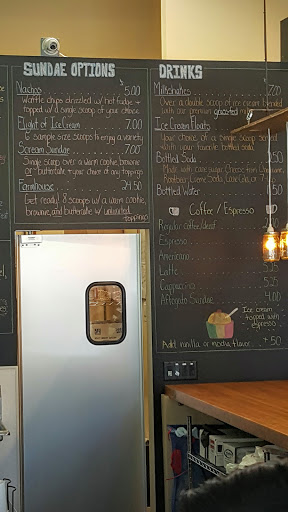 SUNDAE OPTIONS
Nachos 5.00
Waffle chips drizzled w/ hot fudge +
topped w/ a single scoop of your choice.
Flight of Ice Cream 7.00
6 sample size scoops to enjoy a variety
Scream Sundae 7.00
Single scoop over a warm cookie, brownie
or buttercake + your choice of any toppings
Farmhouse 24.50
Get ready! 8 scoops w/ a warm cookie,
brownie, and buttercake w/ unlimited
toppings
DRINKS
Milkshakes 7.00
Over a double scoop of ice cream blended
with our premium
Ice Cream Floats
Your choice of a single scoop served
with your favorite bottled soda
Bottled Soda
Made with cane sugar. Choose from
Rootbeer, Creme Soda,
Bottled Water
Coffee / Espresso
Regular Coffee
Espresso
Americano
Latte 5.25
Cappuccino 5.25
Affogato Sundae 4.00
Ice cream
topped with
espresso
Add vanilla or mocha flavor +.50